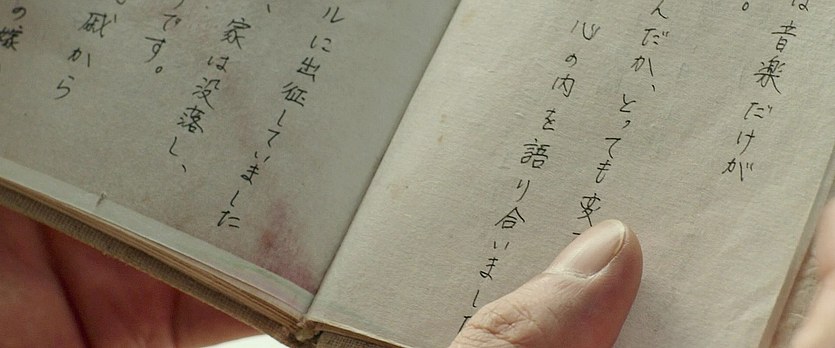 は音楽だけが
。
んだか、とっても変
心の内を語り合いました
ルに出征していました
、家は没落し、
です。
戚から
の嫁